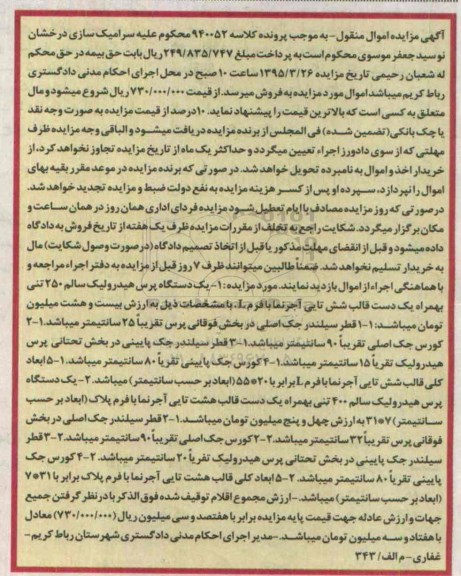 آگهی مزایده اموال منقول - به موجب پرونده کلاسه ۹۴۰۰۵۲ محکوم علیه سرامیک سازی درخشان
نو سید جعفر موسوی محکوم است به پرداخت مبلغ ۲۴۹/۸۳۵/۷۴۷ ریال بابت حق بیمه در حق محکم
له شعبان رحیمی تاریخ مزایده ۱۳۹۵/۳/۲۶ ساعت ۱۰ صبح در محل اجرای احکام مدنی دادگستری
رباط کریم میباشد اموال مورد مزایده به فروش میرسد. از قیمت ۷۳۰/۰۰۰/۰۰۰ ریال شروع میشود و مال
متعلق به کسی است که بالاترین قیمت را پیشنهاد نماید. ۱۰درصد از قیمت مزایده به صورت وجه نقد
یا چک بانکی (تضمین شده) فی المجلس از برنده مزایده دریافت میشود و الباقی وجه مزایده ظرف
مهلتی که از سوی دادورز اجراء تعیین میگردد و حداکثر یک ماه از تاریخ مزایده تجاوز نخواهد کرد، از
خریدار اخذ و اموال به نامبرده تحویل خواهد شد. در صورتی که برنده مزایده در موعد مقرر بقیه بهای
اموال را نپردازد، سپرده او پس از کسر هزینه مزایده به نفع دولت ضبط و مزایده تجدید خواهد شد.
در صورتی که روز مزایده مصادف با ایام تعطیل شود مزایده فردای اداری همان روز در همان ساعت و
مکان برگزار میگردد. شکایت راجع به تخلف از مقررات مزایده ظرف یک هفته از تاریخ فروش به دادگاه
داده میشود و قبل از انقضای مهلت مذکور یا قبل از اتخاذ تصمیم دادگاه (در صورت وصول شکایت) مال
به خریدار تسلیم نخواهد شد. ضمناً طالبین میتوانند ظرف ۷ روز قبل از مزایده به دفتر اجراء مراجعه و
با هماهنگی اجراء از اموال بازدید نمایند. مورد مزایده: ۱- یک دستگاه پرس هیدرولیک سالم ۲۵۰ تنی
بهمراه یک دست قالب شش تایی آجرنما با فرم L، با مشخصات ذیل به ارزش بیست و هشت میلیون
تومان میباشد: ۱-۱ قطر سیلندر جک اصلی در بخش فوقانی پرس تقریباً ۲۵ سانتیمتر میباشد. ۱-۲
کورس جک اصلی تقریباً ۹۰ سانتیمتر میباشد. ۱-۳ قطر سیلندر جک پایینی در بخش تحتانی پرس
هیدرولیک تقریباً ۱۵ سانتیمتر میباشد. ۱-۴ کورس جک پایینی تقریباً ۸۰ سانتیمتر میباشد. ۱-۵ ابعاد
کلی قالب شش تایی آجرنما با فرم L برابر با ۲۰*۵۵ (ابعاد بر حسب سانتیمتر) میباشد. ۲- یک دستگاه
پرس هیدرولیک سالم ۴۰۰ تنی بهمراه یک دست قالب هشت تایی آجرنما با فرم پلاک (ابعاد بر حسب
سانتیمتر) ۷*۳۱ به ارزش چهل و پنج میلیون تومان میباشد. ۲-۱ قطر سیلندر جک اصلی در بخش
فوقانی پرس تقریباً ۳۲ سانتیمتر میباشد. ۲-۲ کورس جک اصلی تقریباً ۹۰ سانتیمتر میباشد. ۲-۳ قطر
سیلندر جک پایینی در بخش تحتانی پرس هیدرولیک تقریباً ۲۰ سانتیمتر میباشد. ۲-۴ کورس جک
پایینی تقریباً ۸۰ سانتیمتر میباشد. ۲-۵ ابعاد کلی قالب هشت تایی آجرنما با فرم پلاک برابر با ۳۱*۷
(ابعاد بر حسب سانتیمتر) میباشد. - ارزش مجموع اقلام توقیف شده فوق الذکر با در نظر گرفتن جمیع
جهات و ارزش عادله جهت قیمت پایه مزایده برابر با هفتصد و سی میلیون ریال (۷۳۰/۰۰۰/۰۰۰) معادل
با هفتاد و سه میلیون تومان میباشد. - مدیر اجرای احکام مدنی دادگستری شهرستان رباط کریم -
غفاری - م الف / ۳۴۳